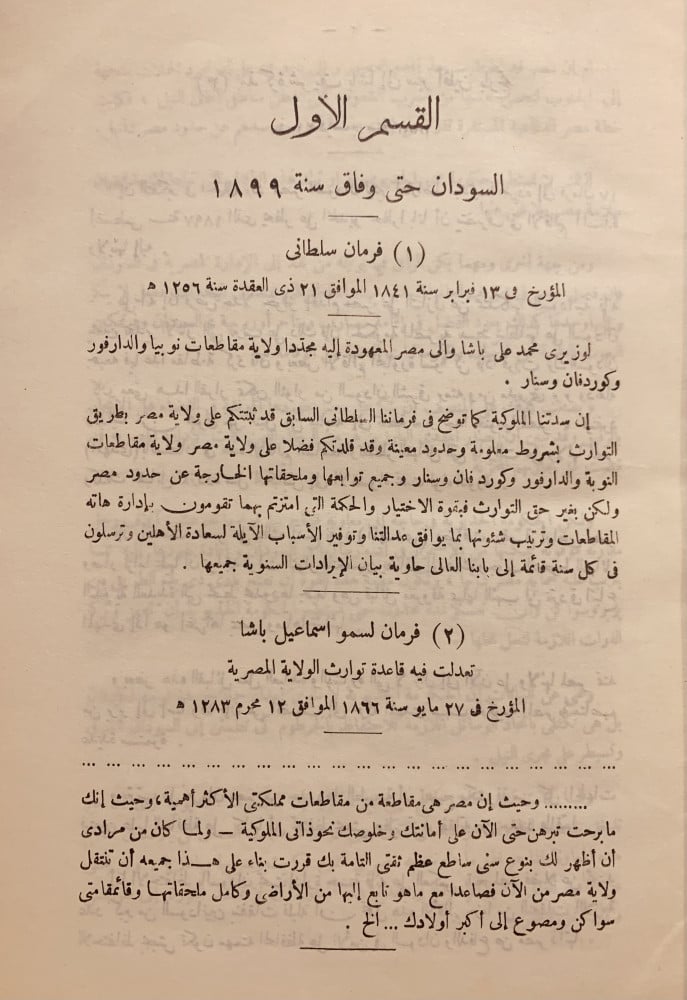 القسم الأول
السودان حتى وفاق سنة ١٨٩٩
(١) فرمان سلطانى
المؤرخ فى ١٣ فبراير سنة ١٨٤١ الموافق ٢١ ذى القعدة سنة ١٢٥٦ ه
لوزيرى محمد على باشا والى مصر المعهودة إليه مجدّدا ولاية مقاطعات نوبيا والدارفور
وكوردفان وسنار .
إن سدتنا الملوكية كما توضح فى فرماننا السلطانى السابق قد ثبتتكم على ولاية مصر بطريق
التوارث بشروط معلومة وحدود معينة وقد قلدتكم فضلا على ولاية مصر ولاية مقاطعات
النوبة والدارفور وكوردفان وسنار وجميع توابعها وملحقاتها الخارجة عن حدود مصر
ولكن بغير حق التوارث فبقوة الاختيار والحكمة التى امتزتم بهما تقومون بإدارة هاته
المقاطعات وترتيب شئونها بما يوافق عدالتنا وتوفير الأسباب الآيلة لسعادة الأهلين وترسلون
فى كل سنة قائمة إلى بابنا العالى حاوية بيان الإيرادات السنوية جميعها .
(٢) فرمان لسمو اسماعيل باشا
تعدلت فيه قاعدة توارث الولاية المصرية
المؤرخ فى ٢٧ مايو سنة ١٨٦٦ الموافق ١٢ محرم ١٢٨٣ ه
... ... ... ... ... ... ... ... ... ... ... ... ... ... ... ... ... ... ...
......... وحيث إن مصر هى مقاطعة من مقاطعات مملكتى الأكثر أهمية، وحيث إنك
ما برحت تبرهن حتى الآن على أمانتك وخلوصك نحو ذاتى الملوكية – ولما كان من مرادى
أن أظهر لك بنوع سنى ساطع عظم ثقتى التامة بك قررت بناء على هـذا جميعه أن تنتقل
ولاية مصر من الآن فصاعدا مع ماهو تابع إليها من الأراضى وكامل ملحقاتها وقائمقامتى
سواكن ومصوع إلى أكبر أولادك ... الخ .